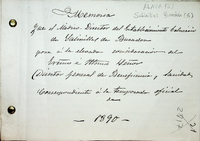 Memoria
que el Médico Director del Establecimiento Balneario
de Salinillas de Buradon
para a la elevada consideracion del
Excmo é Ilustmo Señor
Director general de Beneficencia y Sanidad,
Correspondiente á la temporada oficial
de
1890